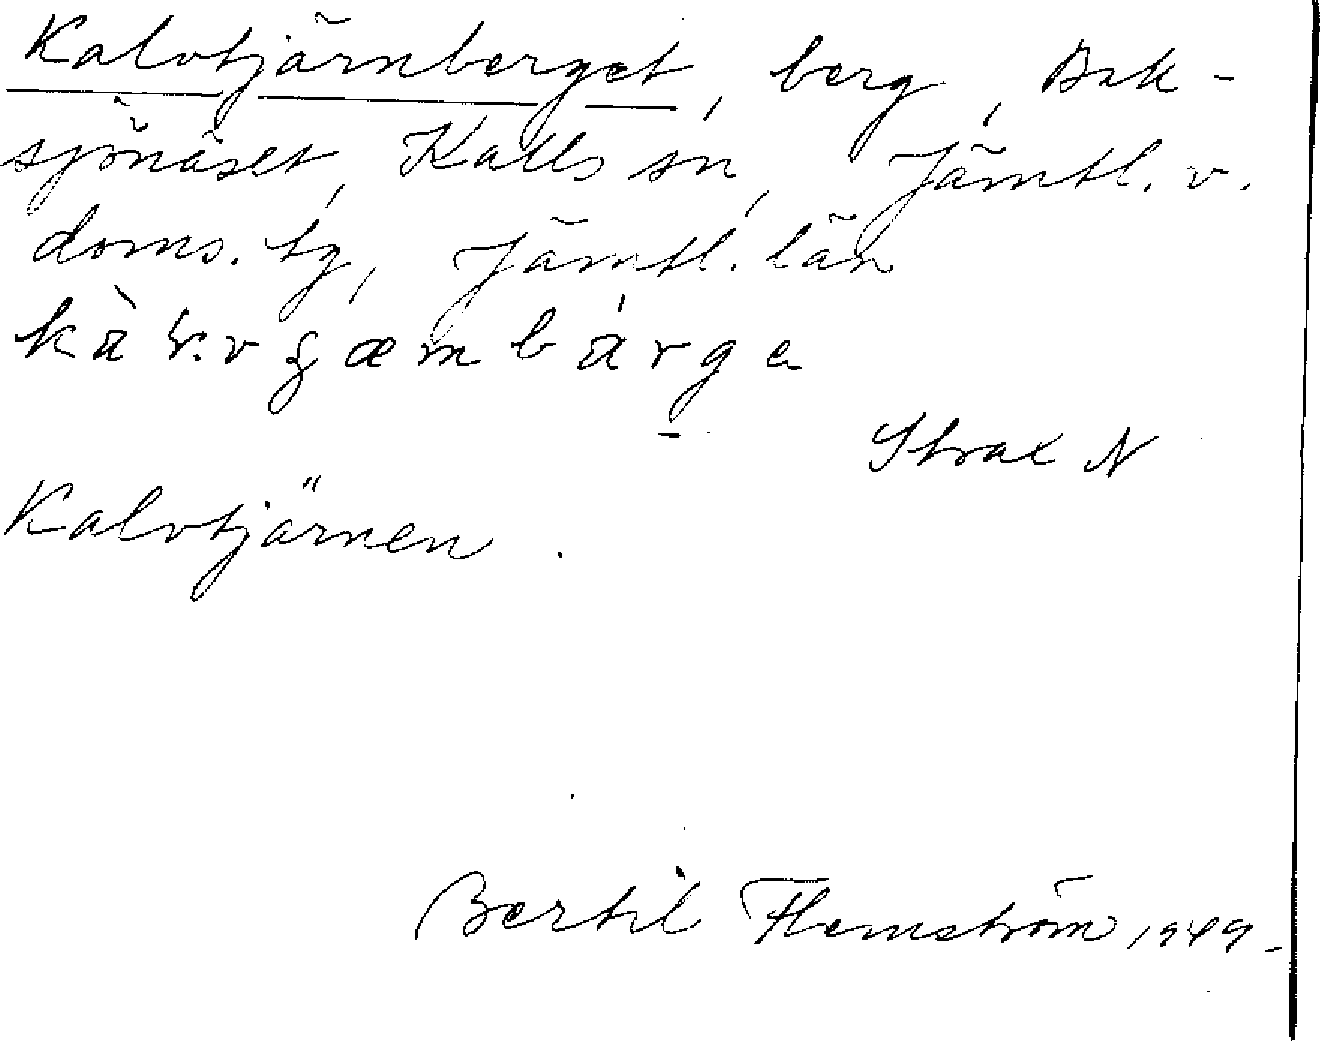 Kalvtjärnberget, berg, Bak-
sjönäset, Kalls sn, Jämtl. v.
doms. tg, Jämtl. län
Strax N
Kalvtjärnen.
Bertil Flemström, 1949.